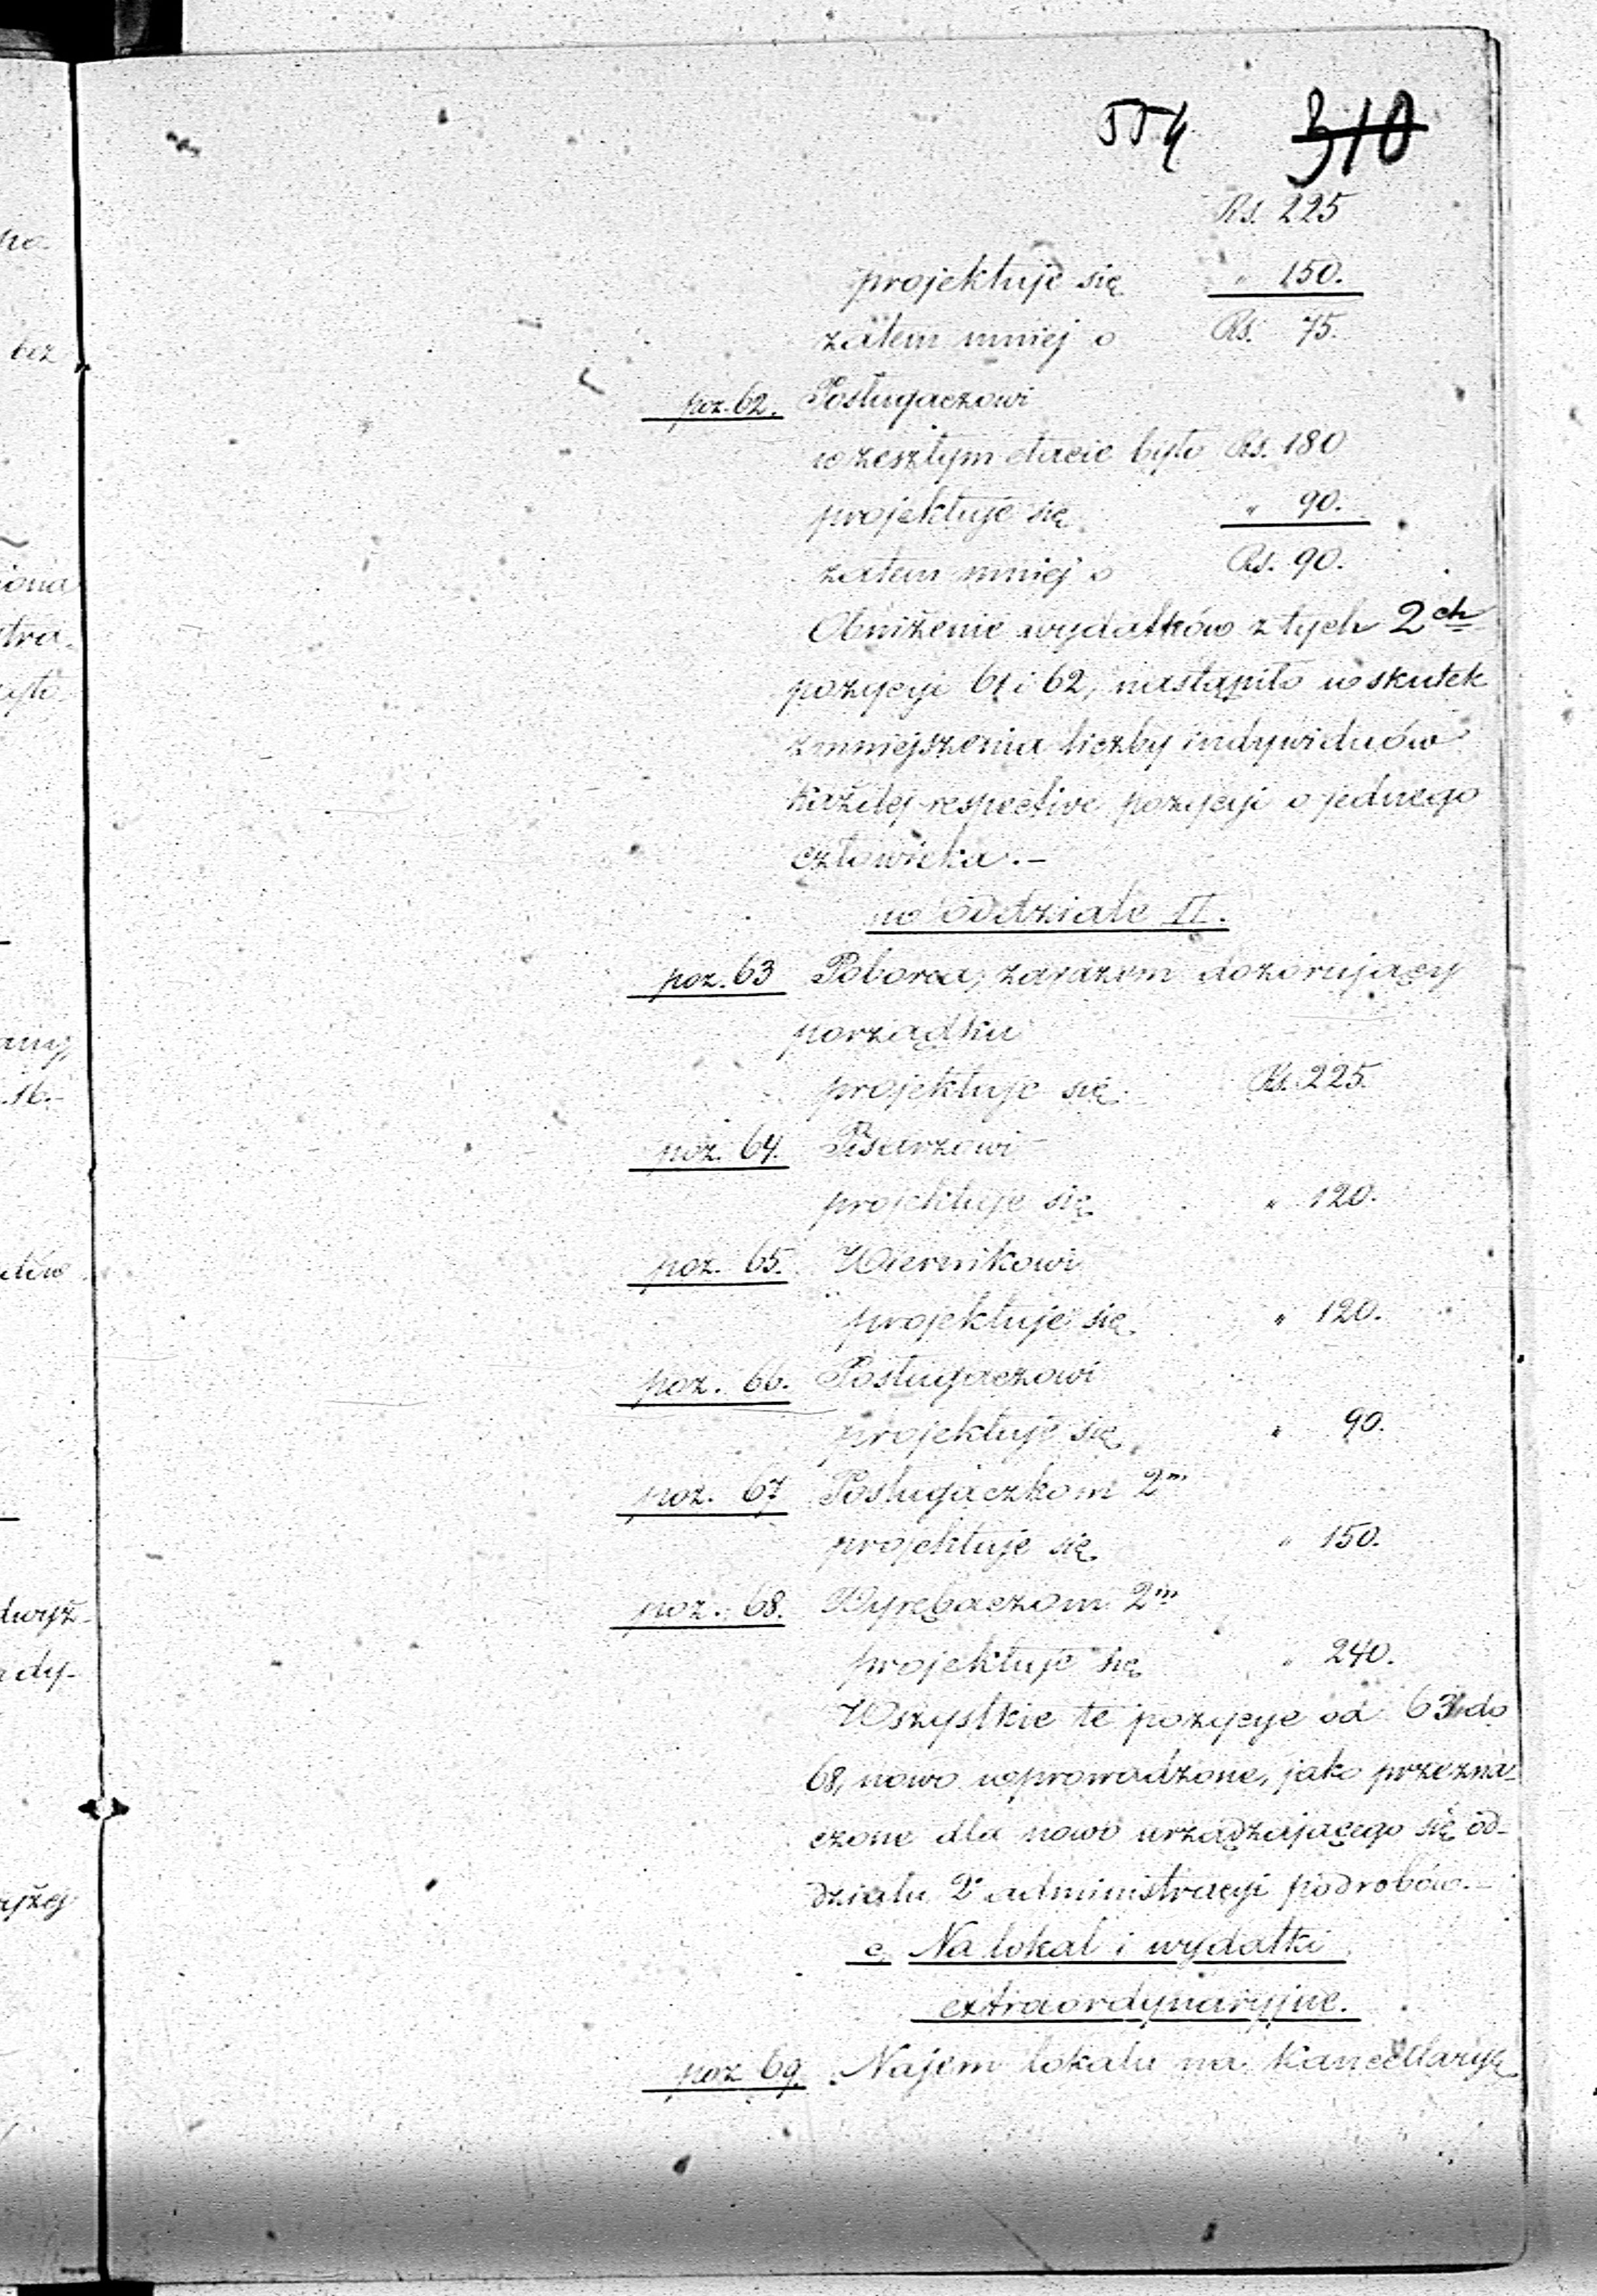 554 310
Rs. 225
projektuje się " 150.
zatem mniej o Rs. 75.
poz. 62. Posługaczowi
w zeszłym etacie było Rs. 180
projektuje się " 90.
zatem mniej o Rs. 90.
Obniżenie wydatków z tych 2ch
pozycyi 61 i 62, nastąpiło wskutek
zmniejszenia liczby indywiduów
każdej respective pozycyi o jednego
człowieka.—
w oddziale II.
poz. 63 Poborca, zarazem dozorujący
porządku
projektuje się Rs. 225.
poz. 64. Pisarzowi
projektuje się " 120.
poz. 65. Wiernikowi
projektuje się " 120.
poz. 66. Posługaczowi
projektuje się " 90.
poz. 67 Posługaczkom 2m
projektuje się " 150.
poz. 68. Wyrębaczom 2m
projektuje się " 240.
Wszystkie te pozycye od 63 do
68, nowo wprowadzone, jako przezna-
czone dla nowo urządzającego się od-
działu 2o administracyi podrobów.—
c, Na lokal i wydatki
extraordynaryjne.
poz 69. Najem lokalu na Kancellaryę
po
bez
iona
tra-
yło
any,
.16.-
dwyż-
ady-
yżej